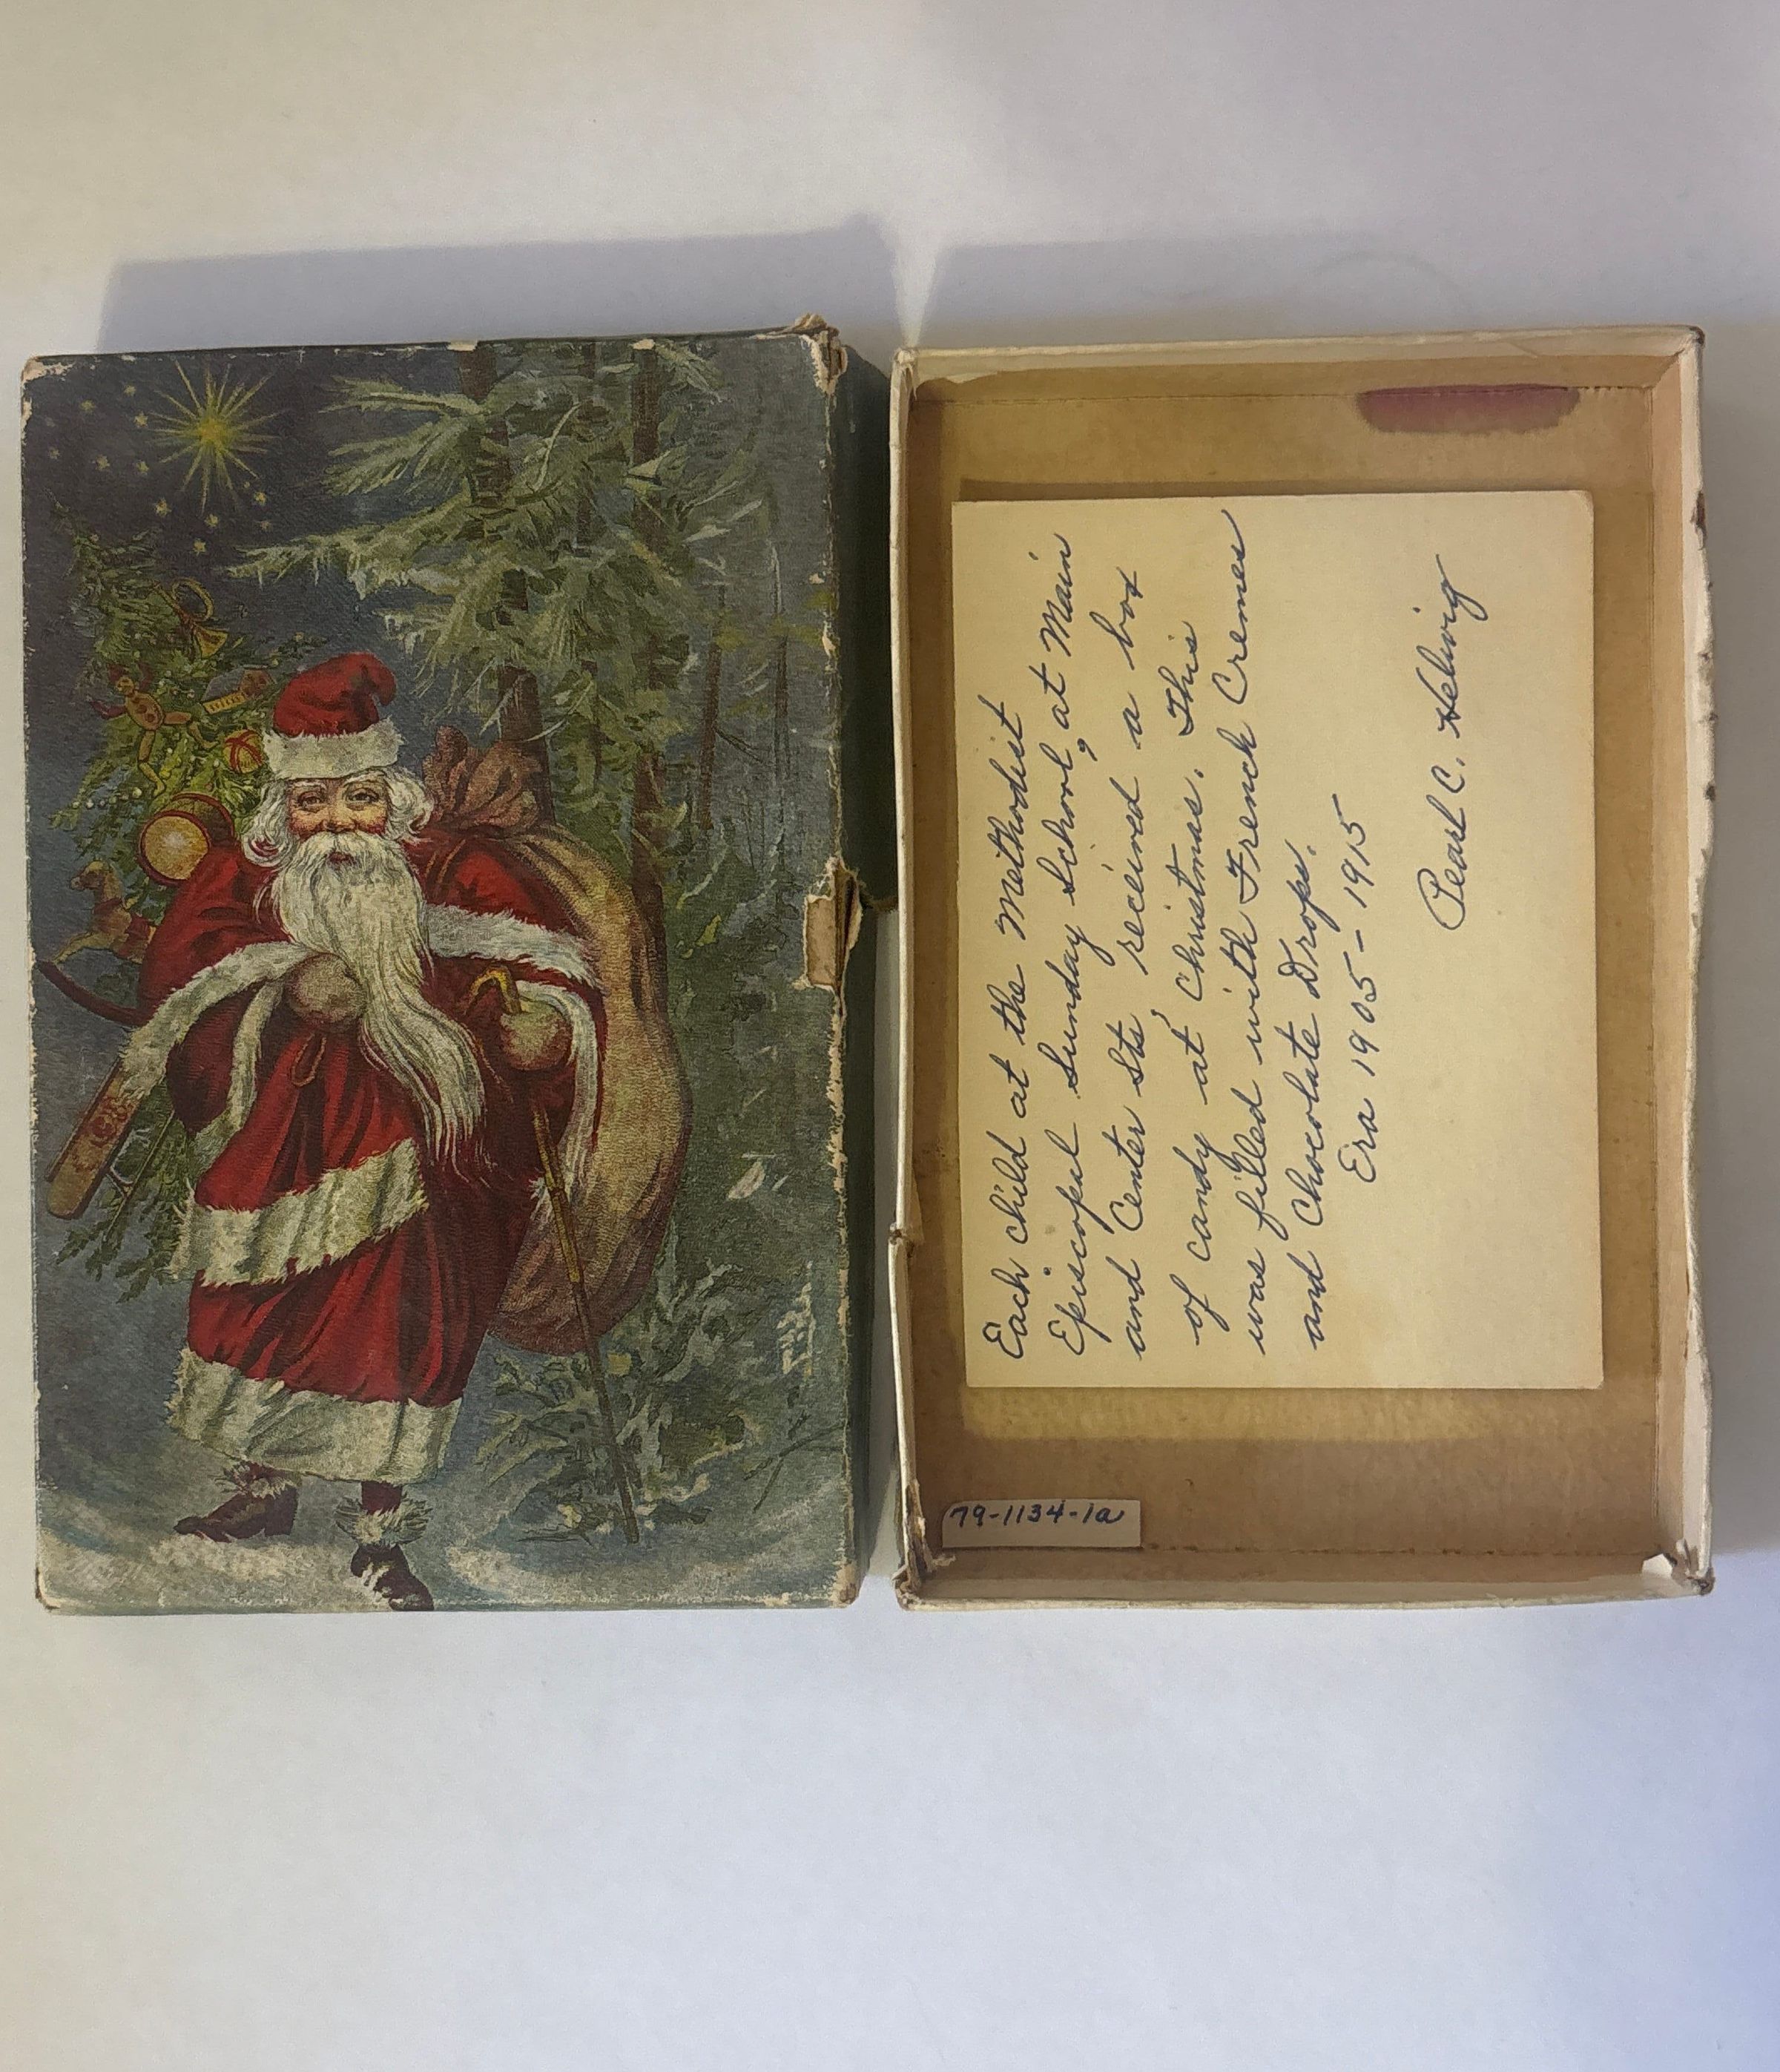 Each child at the Methodist
Episcopal Sunday School, at Main
and Center Sts, received a box
of candy at Christmas. This
was filled with French Cremes
and Chocolate Drops.
Era 1905-1915
Pearl C. Helwig
79-1134-1a